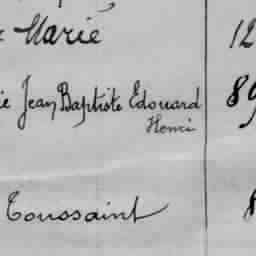 Marie 12
ie Jean Baptiste Edouard 89
Henri
Toussaint 8